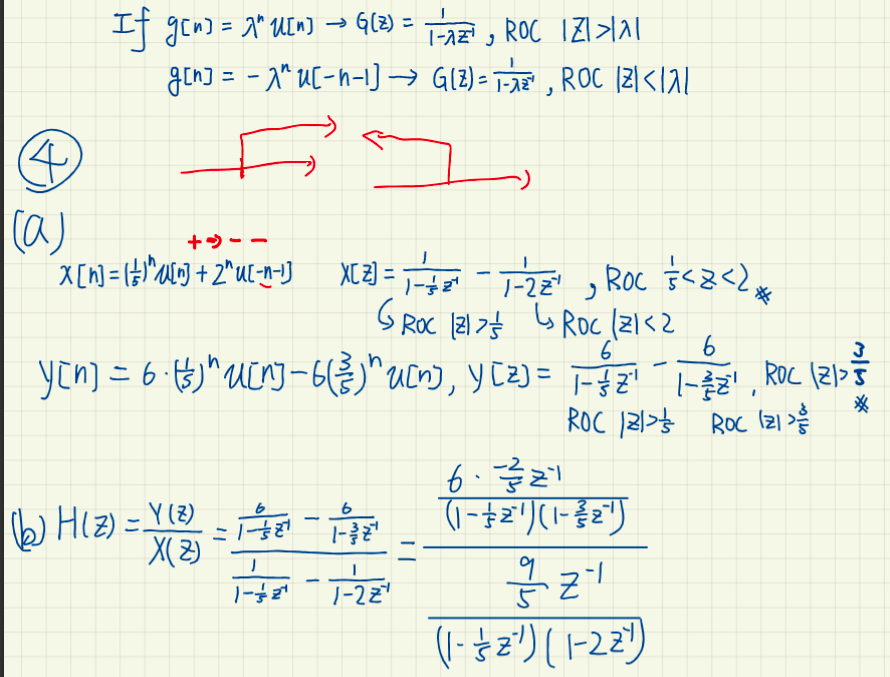 If g[n] = λⁿ u[n] → G(z) = 1/(1-λz⁻¹) , ROC |z|>|λ|
g[n] = -λⁿ u[-n-1] → G(z) = 1/(1-λz⁻¹) , ROC |z|<|λ|
④
(a)
+ → - -
x[n] = (1/5)ⁿ u[n] + 2ⁿ u[-n-1] X[z] = 1/(1-1/5 z⁻¹) - 1/(1-2z⁻¹) , ROC 1/5<z<2 ※
↳ ROC |z|>1/5 ↳ ROC |z|<2
y[n] = 6·(1/5)ⁿ u[n] - 6(3/5)ⁿ u[n], Y[z] = 6/(1-1/5 z⁻¹) - 6/(1-3/5 z⁻¹) , ROC |z|>3/5 ※
ROC |z|>1/5 ROC |z|>3/5
(b) H(z) = Y(z)/X(z) = (6/(1-1/5 z⁻¹) - 6/(1-3/5 z⁻¹))/(1/(1-1/5 z⁻¹) - 1/(1-2z⁻¹)) = (6·-2/5 z⁻¹/((1-1/5 z⁻¹)(1-3/5 z⁻¹)))/(9/5 z⁻¹/((1-1/5 z⁻¹)(1-2z⁻¹)))